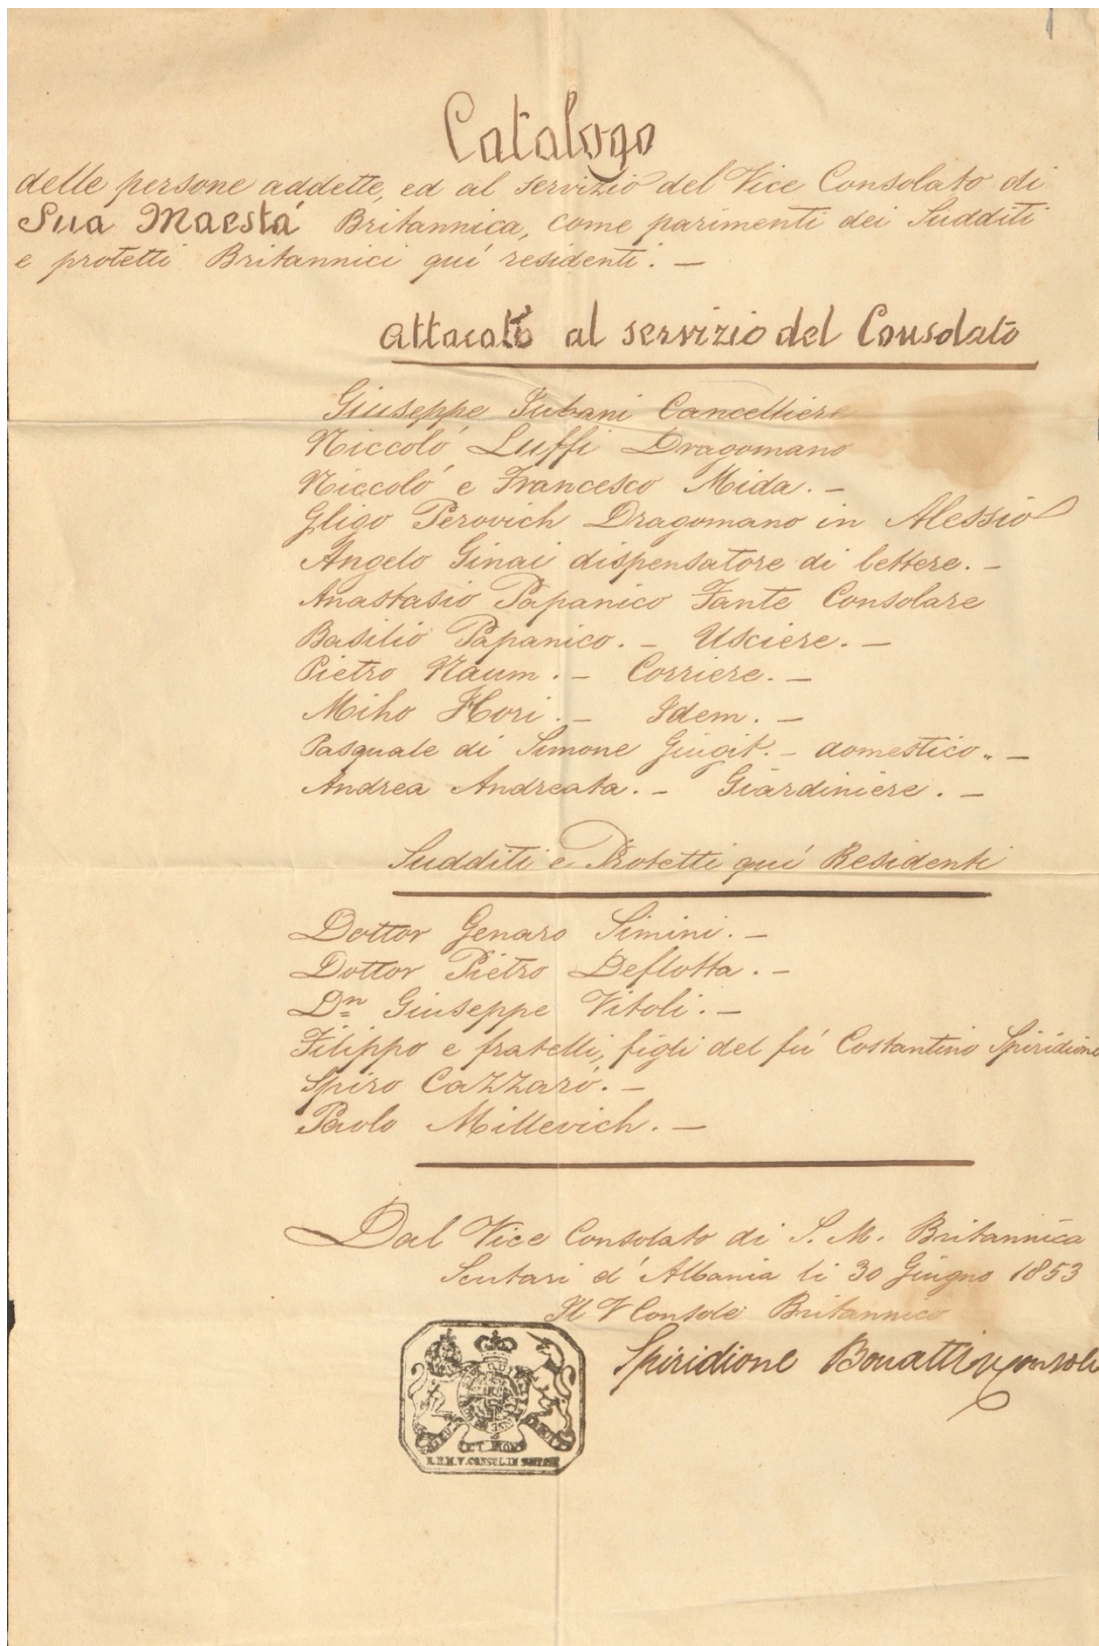 Catalogo
delle persone addette, ed al servizio del Vice Consolato di
Sua Maestá Britannica, come parimenti dei Sudditi
e protetti Britannici quí residenti. —
al servizio del Consolato
Giuseppe Jubani Cancelliere
Niccoló Luffi Dragomano
Niccoló e Francesco Mida. —
Gligo Perovich Dragomano in Alessio
Angelo Ginai dispensatore di lettere. —
Anastasio Papanico Fante Consolare
Basilio Papanico. — Usciere. —
Pietro Naum. — Corriere. —
Miho Hori. — Idem. —
Pasquale di Simone — domestico. —
Andrea Andreata. — Giardiniere. —
Sudditi e Protetti quí Residenti
Dottor Genaro Simini. —
Dottor Pietro Deflotta. —
Dn Giuseppe Vitoli. —
Filippo e fratelli, figli del fú Costantino Spiridione
Spiro Cazzaró. —
Paolo Millevich. —
Dal Vice Consolato di S. M. Britannica
Scutari d'Albania li 30 Giugno 1853
Il V Console Britannico
Spiridione Bonatti